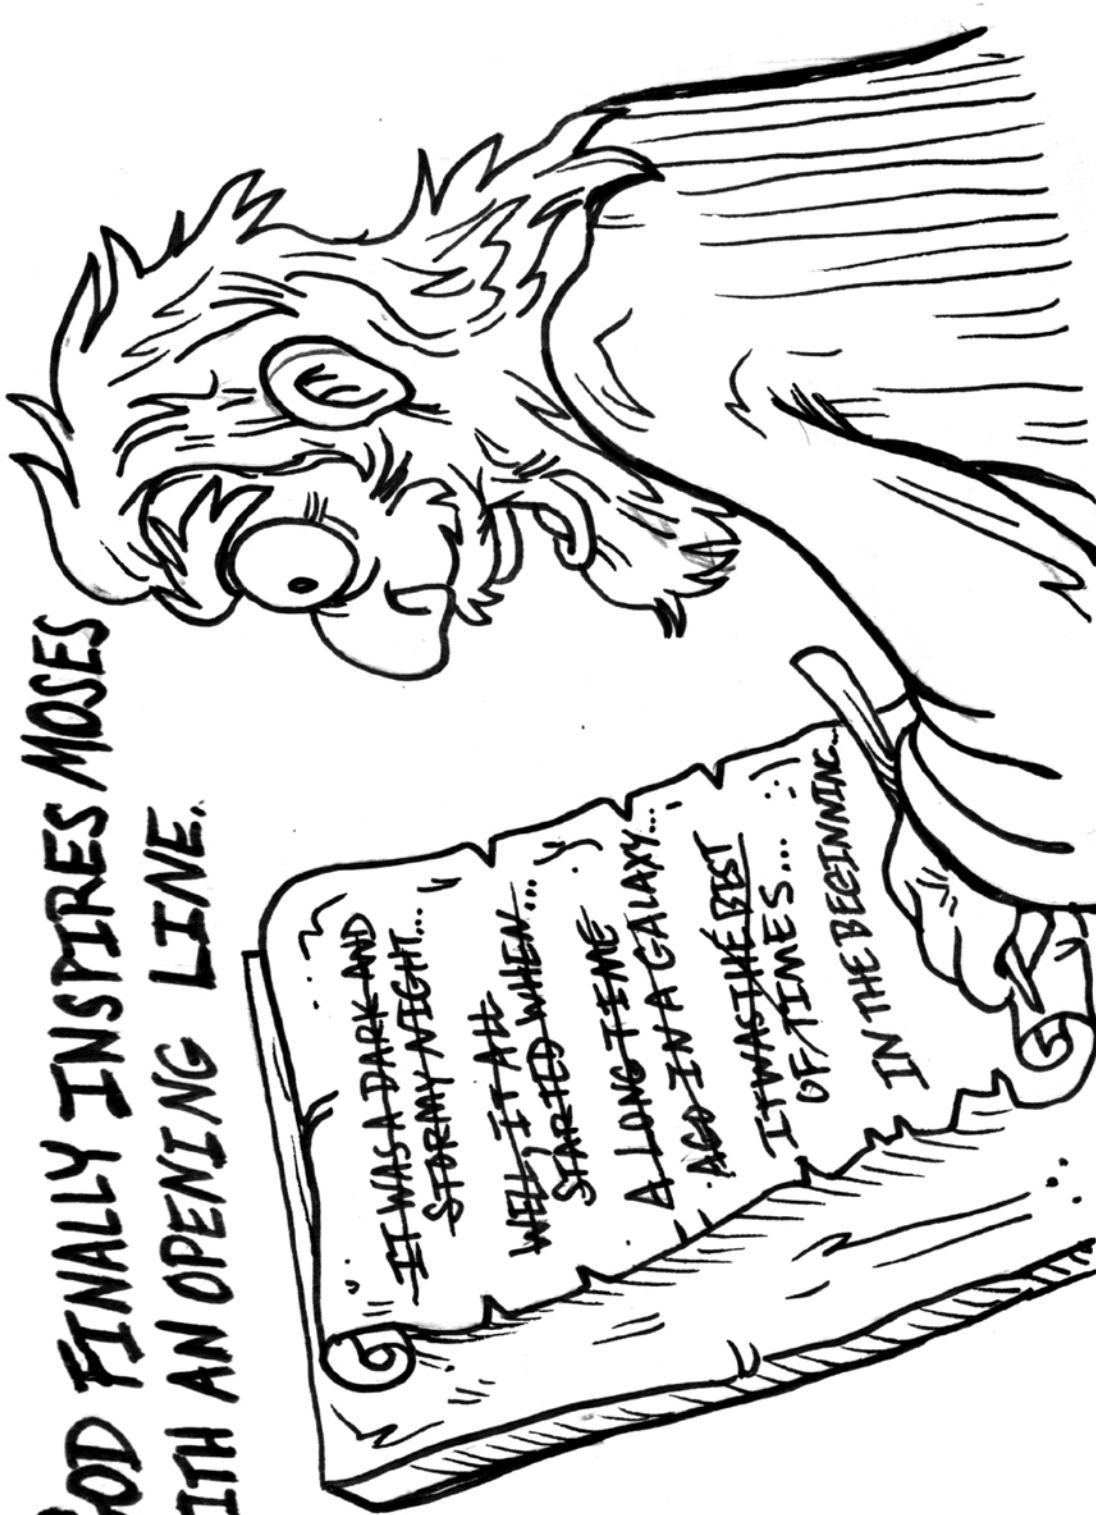 GOD FINALLY INSPIRES MOSES
WITH AN OPENING LINE.
IT WAS A DARK AND
STORMY NIGHT...
WELL, IT ALL
STARTED WHEN...
A LONG TIME
AGO IN A GALAXY...
IT WAS THE BEST
OF TIMES...
IN THE BEGINNING...